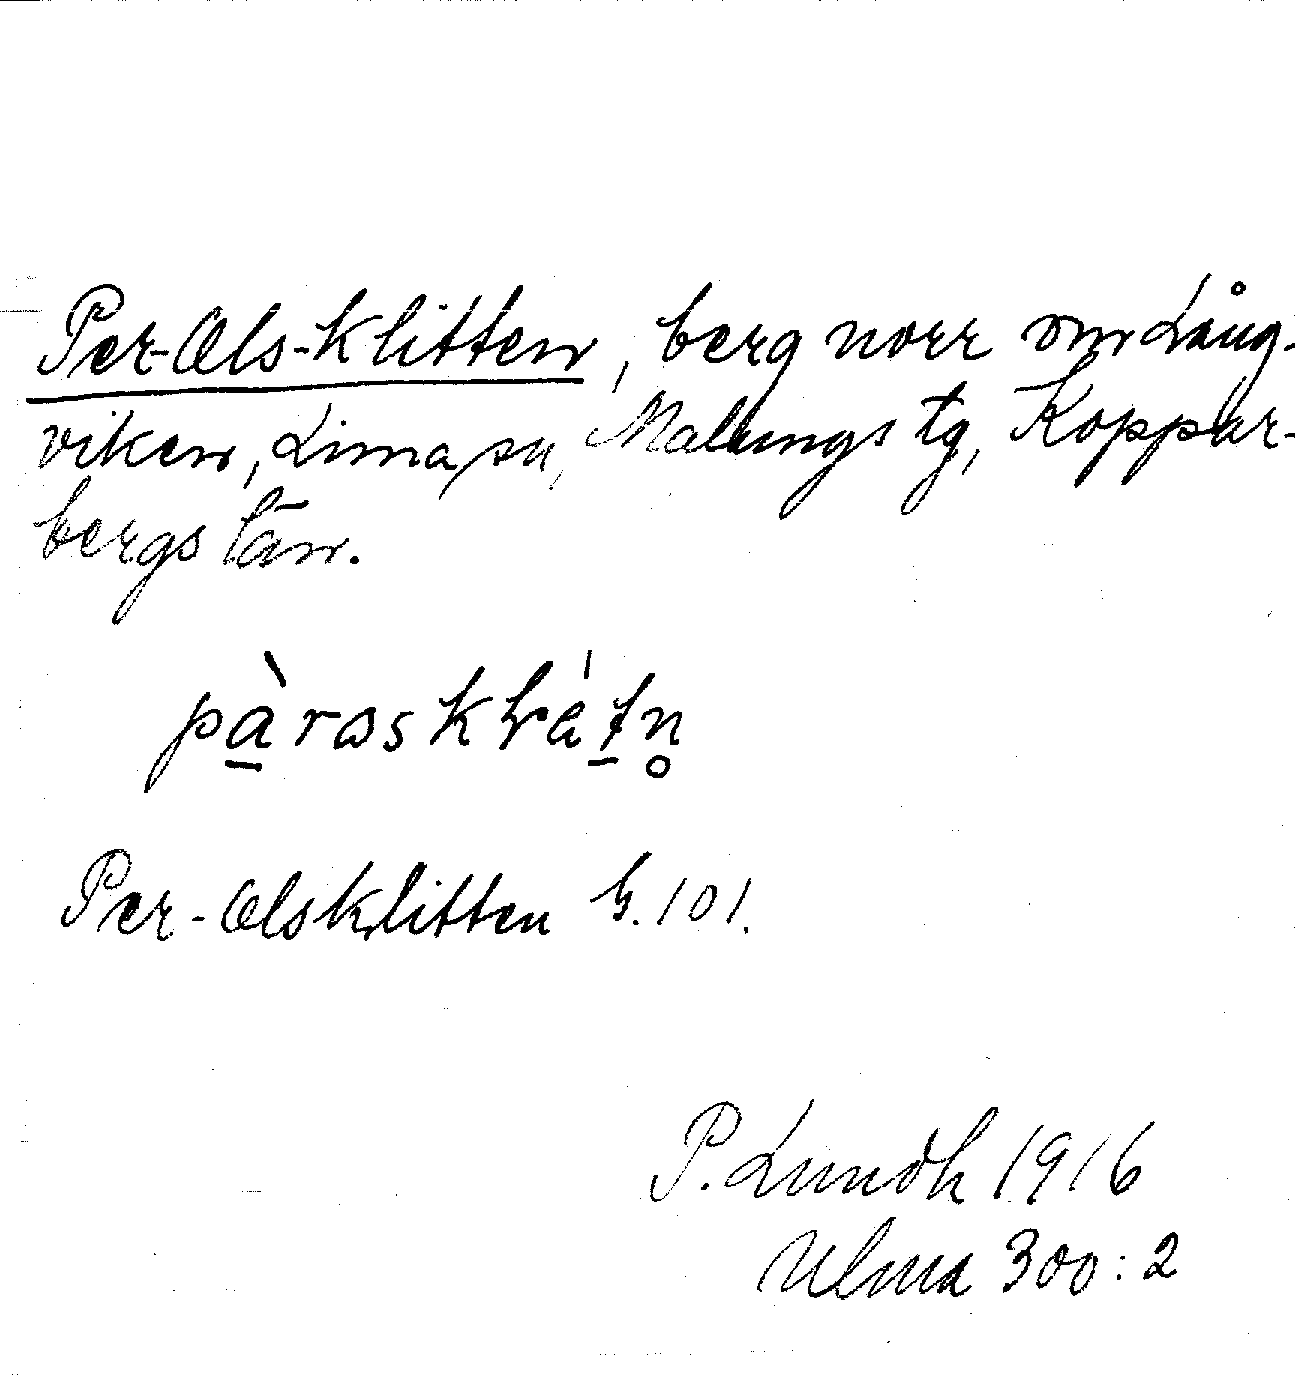 Per-Ols-klitten, berg norr om Lång-
viken, Lima sn, Malungs tg, Koppar-
bergs län.
Per-Olsklitten G. 101.
P. Lundh 1916
Ulma 300:2